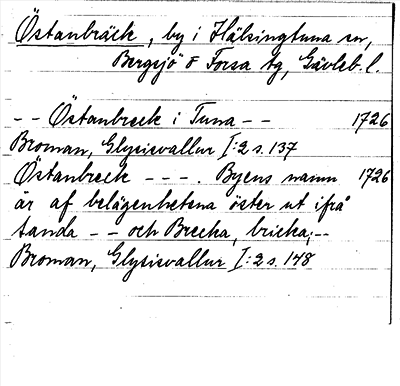 Östanbräck, by i Hälsingtuna sn,
Bergsjö o Forsa tg, Gävleb. l.
-- Östanbreck i Tuna -- 1726
Broman, Glysisvallur I:2 s. 137
Östanbreck ---. Byens namn 1726
är af belägenhetena öster ut ifrå
tanda -- och Brecka, bricka;--
Broman, Glysisvallur I:2 s. 148